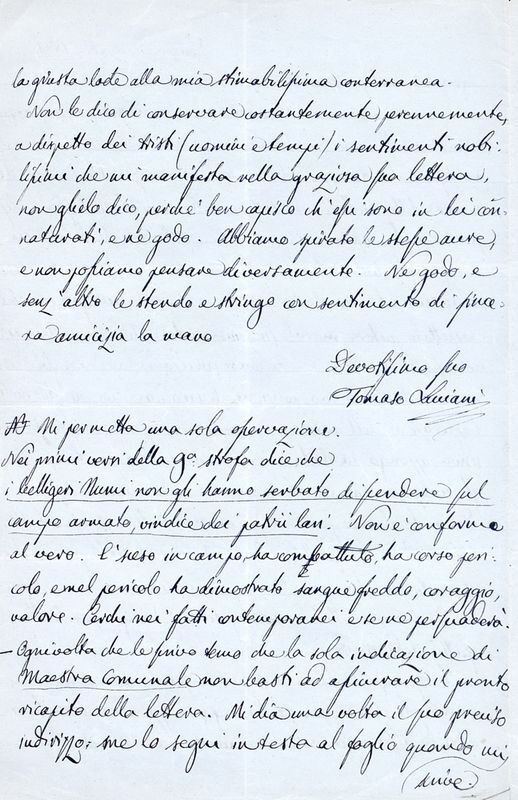 la giusta lode alla mia stimabilissima conterranea.
Non le dico di conservare costantemente perennemente,
a dispetto dei tristi (uomini e tempi) i sentimenti nobi-
lissimi che mi manifesta nella graziosa sua lettera,
non glielo dico, perchè ben capisco ch'essi sono in lei con-
naturati, e ne godo. Abbiamo spirato le stesse aure,
e non possiamo pensare diversamente. Ne godo, e
senz'altro le stendo e stringo con sentimento di since-
ra amicizia la mano
Devotissimo suo
Tomaso Luciani
Mi permetta una sola osservazione.
Nei primi versi della 9a strofa dice che
i belligeri Numi non gli hanno serbato di scendere sul
campo armato, vindice dei patrii lari. Non è conforme
al vero. È sceso in campo, ha combattuto, ha corso peri-
colo, e nel pericolo ha dimostrato sangue freddo, coraggio,
valore. Cerchi nei fatti contemporanei e se ne persuaderà.
– Ogni volta che le scrivo temo che la sola indicazione di
Maestra Comunale non basti ad assicurare il pronto
ricapito della lettera. Mi dia una volta il suo preciso
indirizzo; me lo segni in testa al foglio quando mi
scrive.